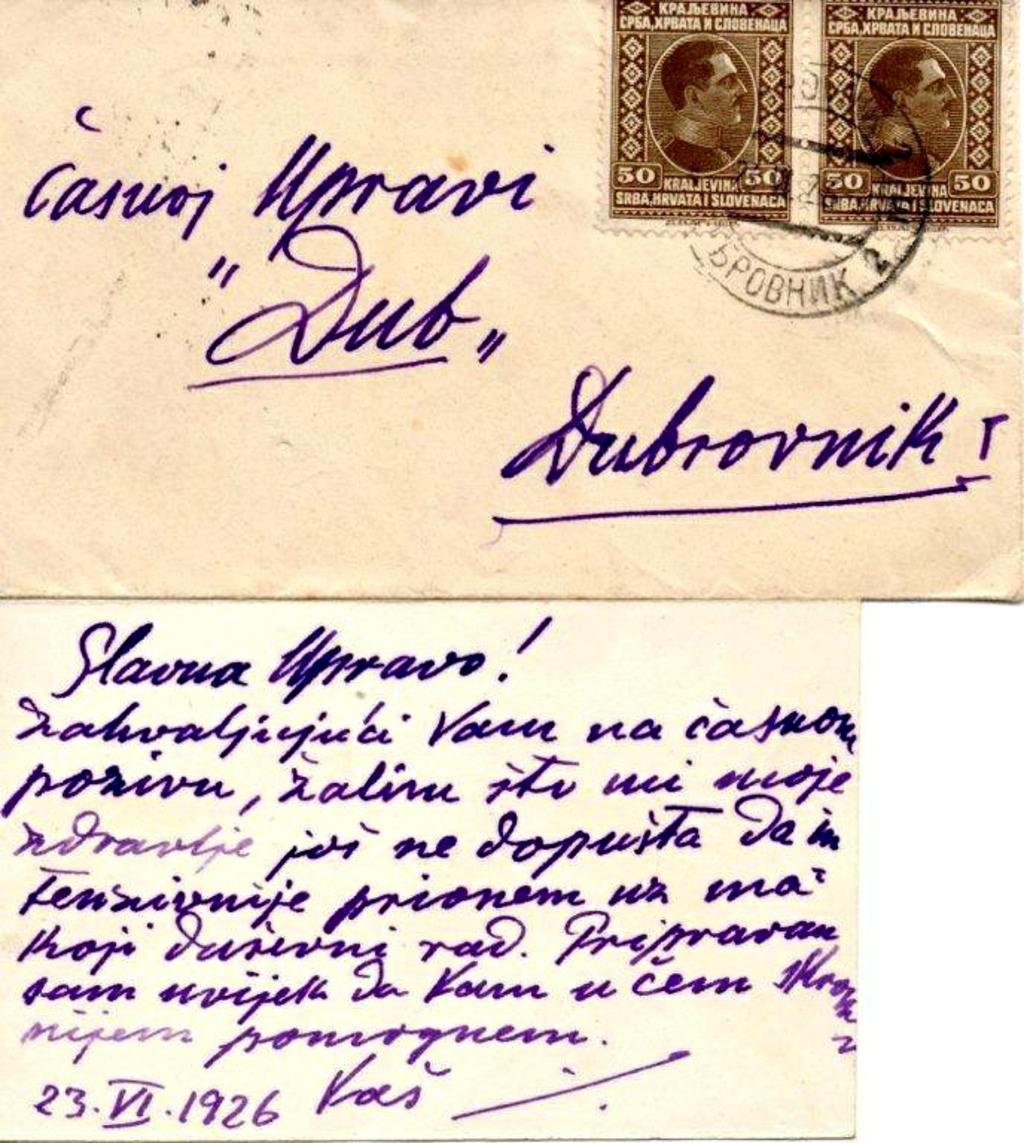 КРАЉЕВИНА
СРБА, ХРВАТА И СЛОВЕНАЦА
50 KRALJEVINA 50
SRBA, HRVATA I SLOVENACA
КРАЉЕВИНА
СРБА, ХРВАТА И СЛОВЕНАЦА
50 KRALJEVINA 50
SRBA, HRVATA I SLOVENACA
БРОВНИК 2
Časnoj Upravi
"Dub"
Dubrovnik
Slavna Upravo!
Zahvaljujući Vam na časnom
pozivu, žalim što mi moje
zdravlje još ne dopušta da in
tenzivnije prionem uz ma
koji duševni rad. Pripravan
sam uvijek da Vam u čem skrom
nijem pomognem.
23.VI.1926 Vaš